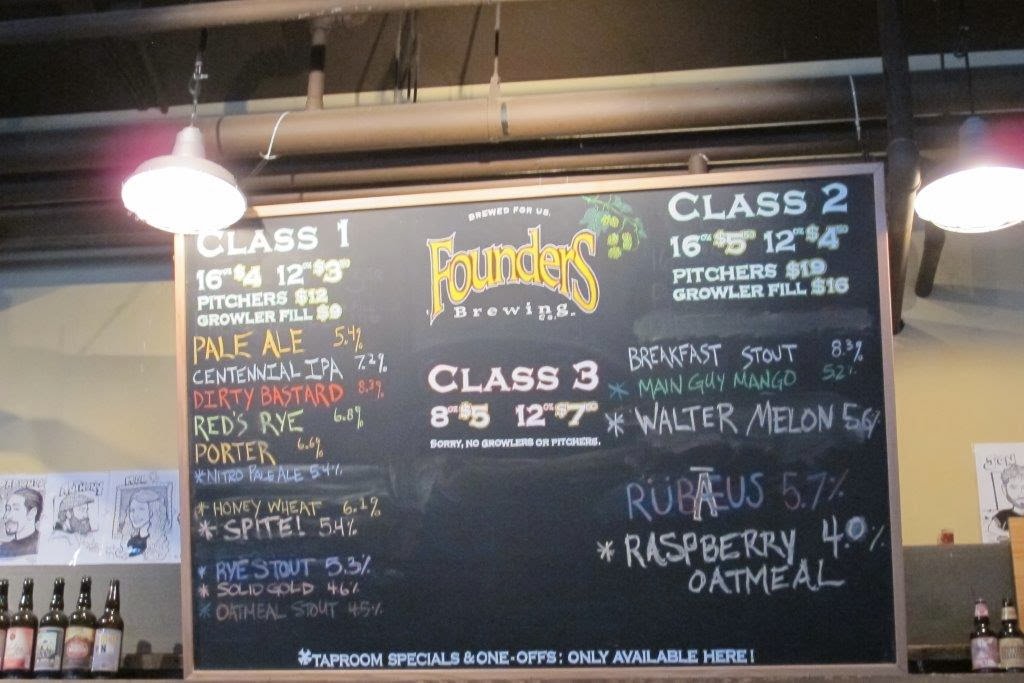 CLASS 1
16oz $4 12oz $3
PITCHERS $12
GROWLER FILL $9
PALE ALE 5.4%
CENTENNIAL IPA 7.2%
DIRTY BASTARD 8.3%
RED'S RYE 6.8%
PORTER 6.6%
*NITRO PALE ALE 5.4%
* HONEY WHEAT 6.2%
* SPITE! 5.4%
* RYE STOUT 5.3%
* SOLID GOLD 4.6%
* OATMEAL STOUT 4.5%
BREWED FOR US.
Founders
Brewing CO.
CLASS 3
8oz $5 12oz $7
SORRY, NO GROWLERS OR PITCHERS.
CLASS 2
16oz $5 12oz $4
PITCHERS $19
GROWLER FILL $16
BREAKFAST STOUT 8.3%
* MAIN GUY MANGO 5.2%
* WALTER MELON 5.6%
RÜBĀEUS 5.7%
* RASPBERRY 4.0%
OATMEAL
*TAPROOM SPECIALS & ONE-OFFS: ONLY AVAILABLE HERE!